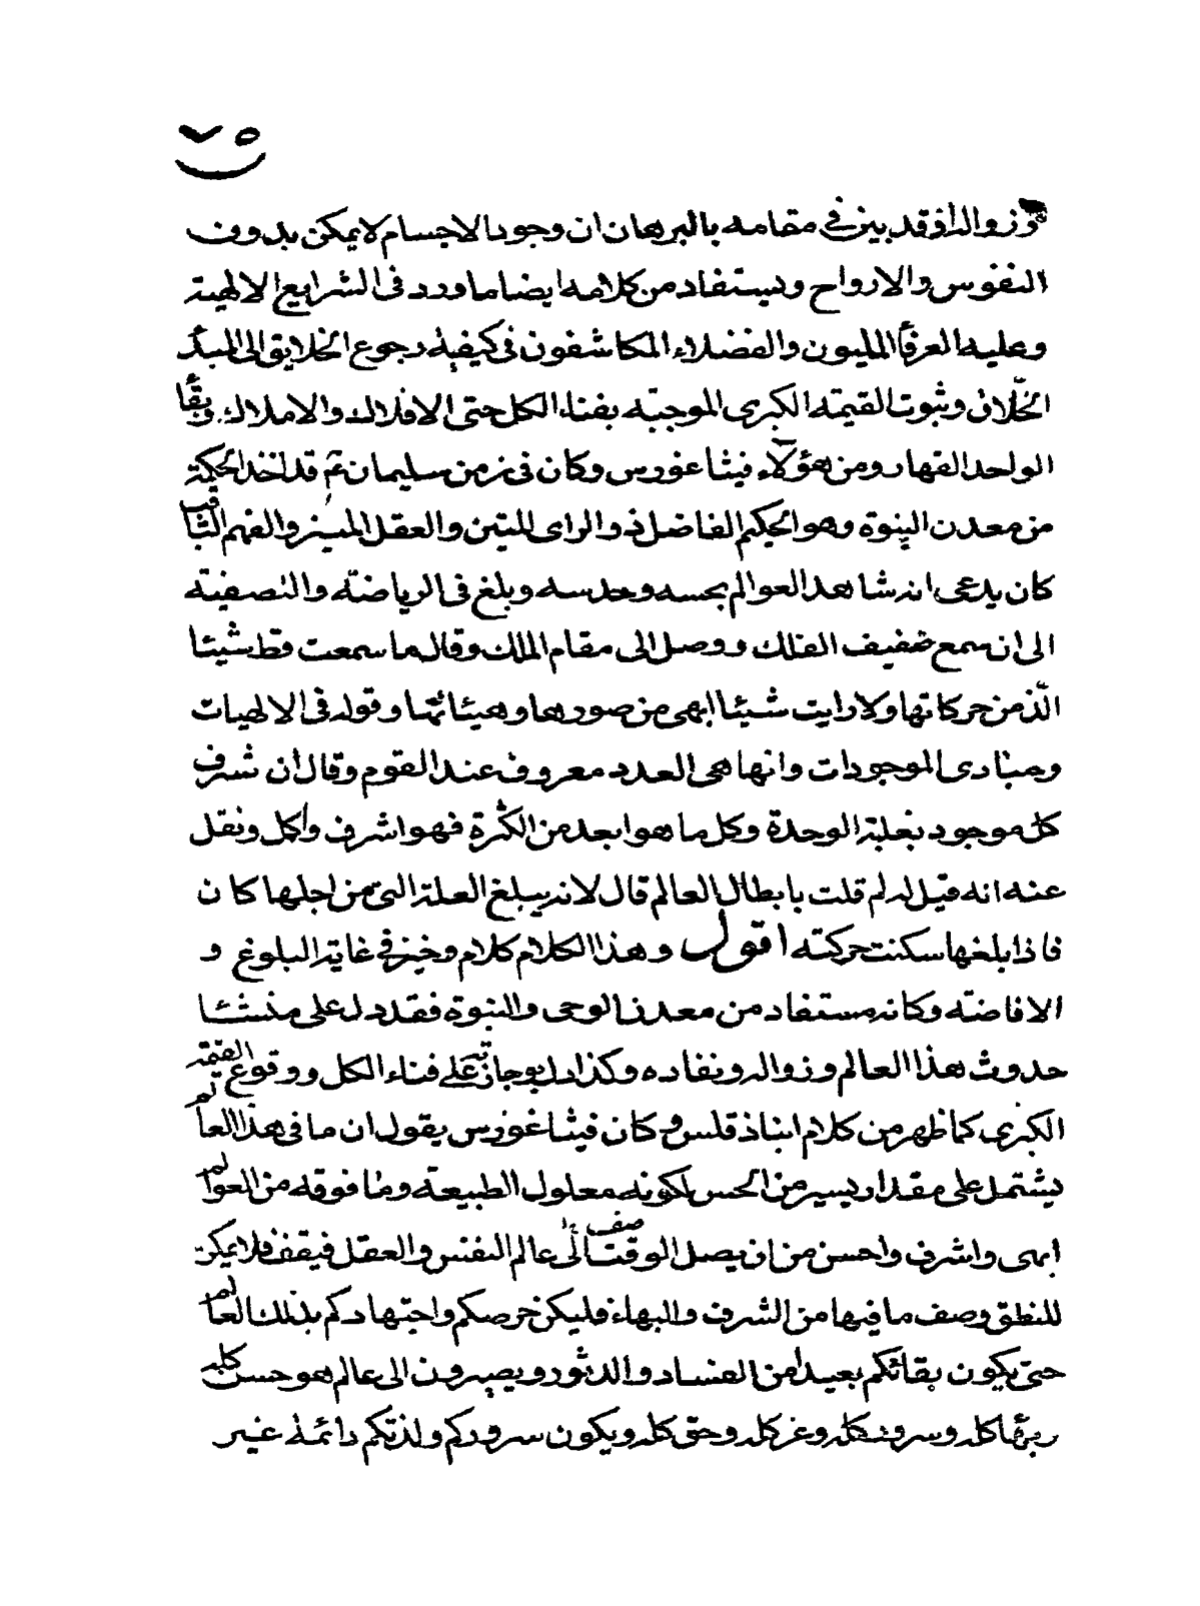 ٧٥
وزوالها وقد بين في مقامه بالبرهان ان وجود الاجسام لا يمكن بدون
النفوس والارواح ويستفاد من كلامه ايضا ما ورد فى الشرايع الالهية
وعليه العرفأ المليون والفضلاء المكاشفون فى كيفية رجوع الخلايق الى المبدأ
الخلّاق وثبوت القيمته الكبرى الموجبة بفناء الكل حتى الافلاك والاملاك وبقأ
الواحد القهار ومن هؤلآء فيثاغورس وكان فى زمن سليمان ع قد اخذ الحكمة
من معدن النبوة وهو الحكيم الفاضل ذو الراى المتين والعقل المبين والفهم الثاقب
كان يدعى انه شاهد العوالم بحسه وحدسه وبلغ فى الرياضة والتصفية
الى ان سمع خفيف الفلك ووصل الى مقام الملك وقال ما سمعت قط شيئا
الذّ من حركاتها ولا رايت شيئا ابهى من صورها وهيئاتها وقوله فى الالهيات
ومبادى الموجودات وانها هى العدد معروف عند القوم وقال ان شرف
كل موجود بغلبة الوحدة وكل ما هو ابعد من الكثرة فهو اشرف واكمل ونقل
عنه انه قيل له لم قلت بابطال العالم قال لانه يبلغ العلة التى من اجلها كان
فاذا بلغها سكنت حركته اقول وهذا الكلام كلام وخيز في غاية البلوغ و
الافاضة وكانه مستفاد من معدن الوحى والنبوة فقد دل على منشئا
حدوث هذا العالم وزواله ونفاده وكذا دل بوجازته على فناء الكل ووقوع القيمة
الكبرى كما ظهر من كلام انباذقلس وكان فيثاغورس يقول ان ما فى هذا العالم
يشتمل على مقدار يسير من الحس لكونه معلول الطبيعة وما فوقه من العوالم
ابهى واشرف واحسن من ان يصل الوصف الى عالم النفس والعقل فيقف فلا يمكن
للنطق وصف ما فيها من الشرف والبهاء فليكن حرصكم واجتهادكم بذلك العالم
حتى يكون بقائكم بعيدا من الفساد والدثور ويصيرون الى عالم هو حسن كله
وبهأ كله وسرور كله وعز كله وحق كله ويكون سروركم ولذتكم دائمة غير